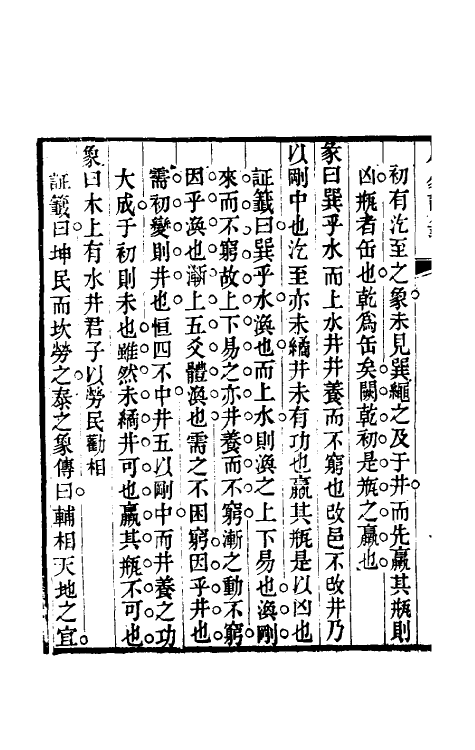 初有汔至之象未見巽繩之及于井而先羸其瓶則
凶瓶者缶也乾爲缶矣闕乾初是瓶之羸也
彖曰巽乎水而上水井井養而不窮也改邑不改井乃
以剛中也汔至亦未繘井未有功也羸其瓶是以凶也
証籤曰巽乎水渙也而上水則渙之上下易也渙剛
來而不窮故上下易之亦井養而不窮漸之動不窮
因乎渙也漸上五爻體渙也需之不困窮因乎井也
需初變則井也恒四不中井五以剛中而井養之功
大成于初則未也雖然未繘井可也羸其瓶不可也
象曰木上有水井君子以勞民勸相
証籤曰坤民而坎勞之泰之象傳曰輔相天地之宜